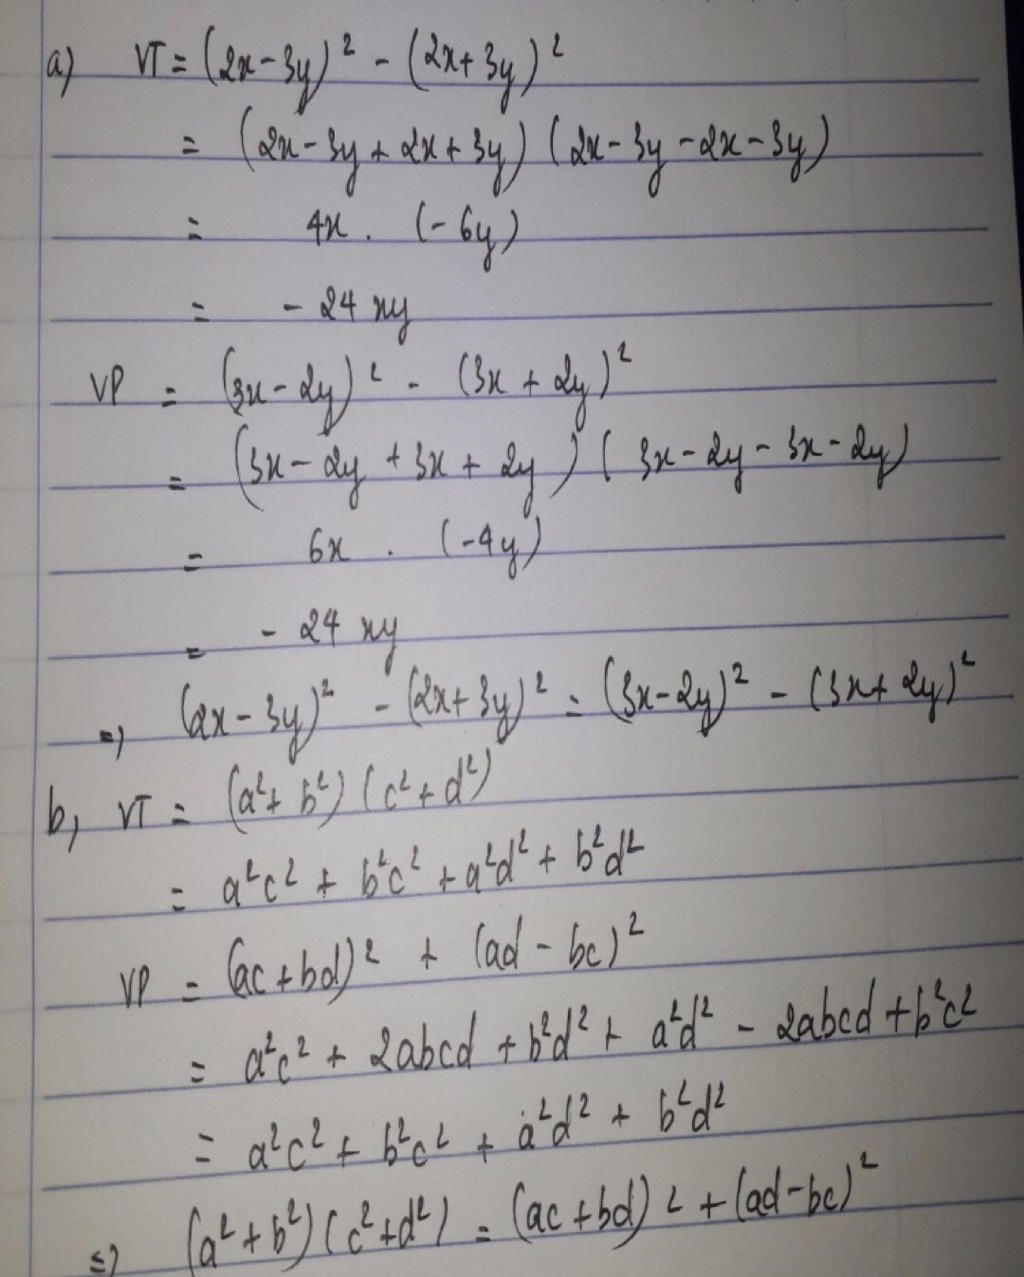 a) VT = (2x - 3y)² - (2x + 3y)²
= (2x - 3y + 2x + 3y) (2x - 3y - 2x - 3y)
= 4x . (- 6y)
= - 24 xy
VP = (3x - 2y)² - (3x + 2y)²
= (3x - 2y + 3x + 2y) (3x - 2y - 3x - 2y)
= 6x . (-4y)
= - 24 xy
=) (2x - 3y)² - (2x + 3y)² = (3x - 2y)² - (3x + 2y)²
b, VT = (a² + b²) (c² + d²)
= a²c² + b²c² + a²d² + b²d²
VP = (ac + bd)² + (ad - bc)²
= a²c² + 2abcd + b²d² + a²d² - 2abcd + b²c²
= a²c² + b²c² + a²d² + b²d²
=) (a² + b²) (c² + d²) = (ac + bd)² + (ad - bc)²